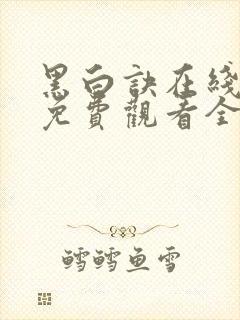 黑白訣在綫
免費觀看全
鱈鱈鱼雪